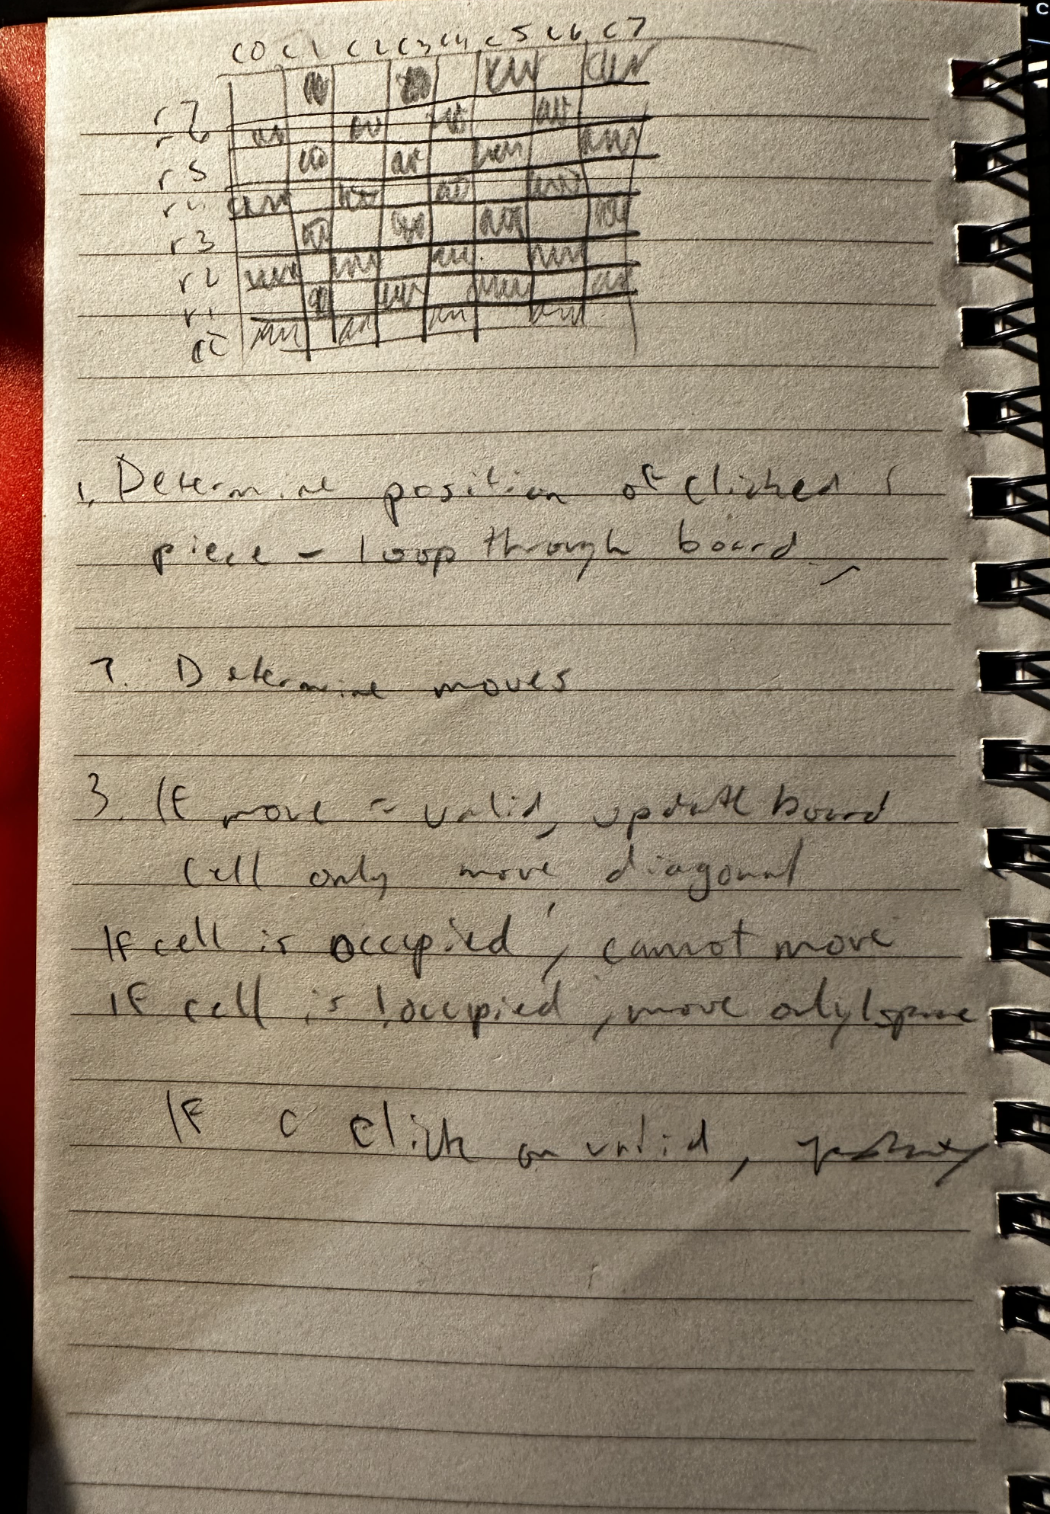 c0 c1 c2 c3 c4 c5 c6 c7
r7
r6
r5
r4
r3
r2
r1
r0
1. Determine position of clicked
piece - loop through board
2. Determine moves
3. If move = valid, update board
Cell only move diagonal
If cell is occupied, cannot move
If cell is !occupied, move only 1 space
If c click on valid,
C